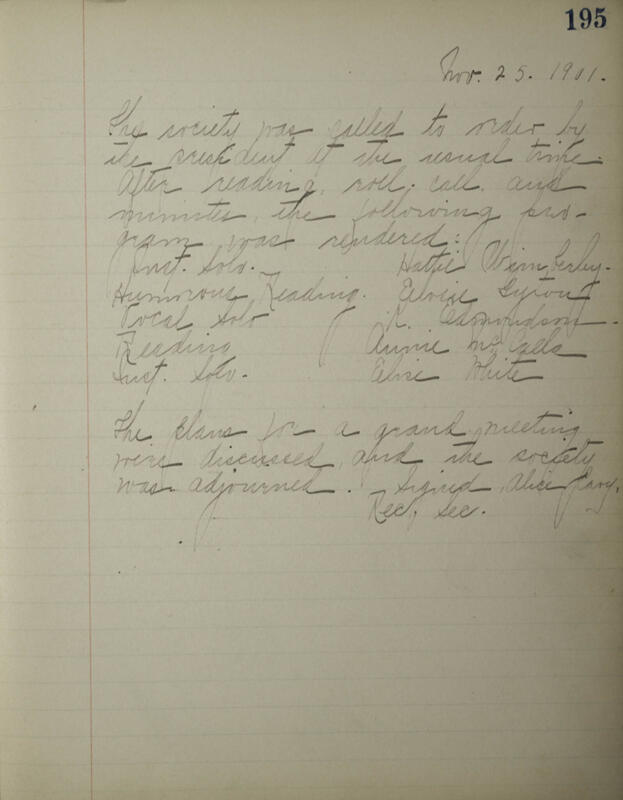 195
Nov. 25. 1901.
The society was called to order by
the president at the usual time.
After reading, roll, call, and
minutes, the following pro-
gram was rendered:
Inst. Solo. Hattie Wimberly.
Humorous Reading. Eloise
Vocal Solo K. Edmondson.
Reading Annie McCalla
Inst. Solo. Elise White
The plans for a grand meeting
were discussed, and the society
was adjourned. Signed, Alice
Rec, Sec.